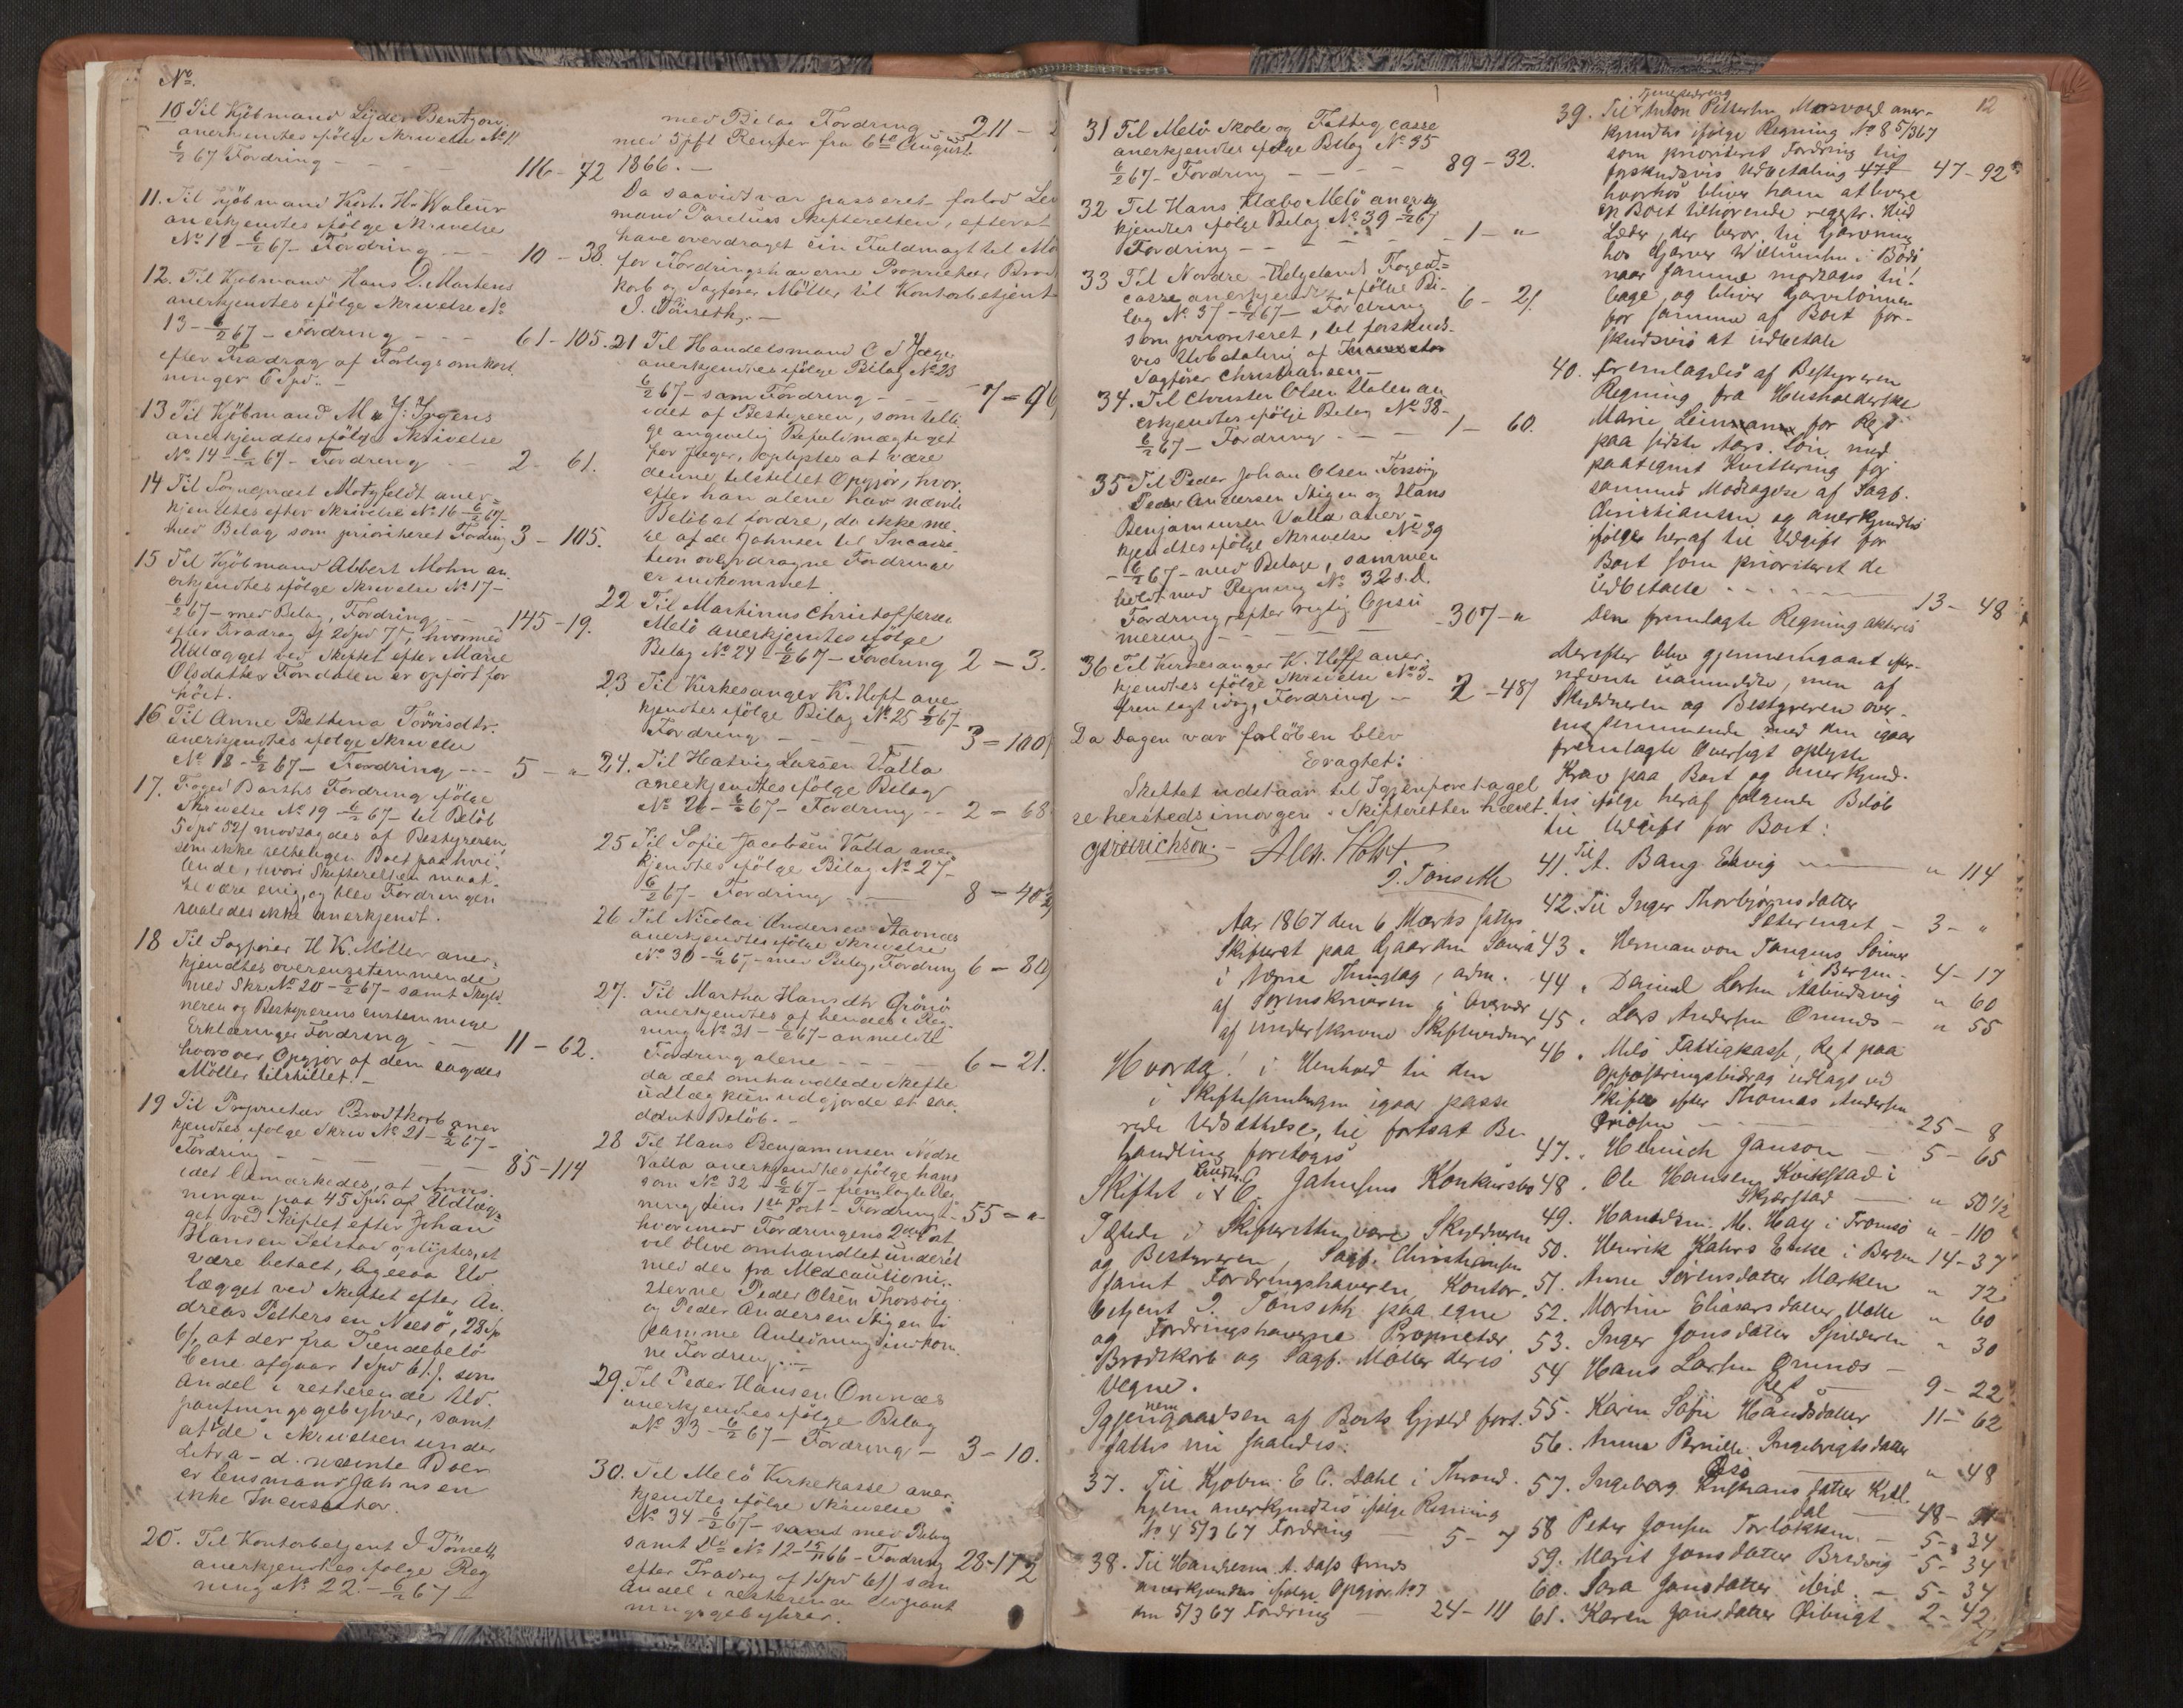 No.
10 Til Kjöbmand Lyder Bentzon
anerkjendtes ifölge Skrivelse No 11
6/2 67 Fordring — — — 116-72
11. Til Kjöbmand Host. H. Waleur
anerkjendtes ifölge Skrivelse
No 12 - 6/2 67 - Fordring — — 10-38.
12. Til Kjöbmand Hans D. Martens
anerkjendtes ifölge Skrivelse No
13 - 6/2 67 - Fordring — — — 61-105.
efter Fradrag af Forligsomkost
ninger 6 Spd. -
13 Til Kjöbmand M. J. Irgens
anerkjendtes ifölge Skrivelse
No 14 - 6/2 67 - Fordring — 2- 61.
14 Til Sognepræst Motzfeldt aner-
kjendtes efter Skrivelse No 16 - 6/2 67 -
med Bilag som prioriteret Fordring 3-105.
15 Til Kjöbmand Albert Mohn an-
erkjendtes ifölge Skrivelse No 17 -
6/2 67 - med Bilag, Fordring — 145-19.
efter Fradrag af 2 Spd 7 s, hvormed
Udlægget ved Skiftet efter Marie
Olsdatter Fondalen er opfört for
höit.
16 Til Anne Bethina Torrisdtr.
anerkjendtes ifölge Skrivelse
No 18 - 6/2 67 - Fordring - - - 5 - "
17. Foged Barths Fordring ifölge
Skrivelse No 19 6/2 67 - til Belöb
5 Spd 52 s modsagdes af Bestyreren,
som ikke vedkommende Boet paahvi-
lende, hvori Skifteretten maat-
te være enig, og blev Fordringen
saaledes ikke anerkjendt.
18 Til Sagförer H. K. Möller aner-
kjendtes overensstemmende
med Skr. No 20 - 6/2 67 - samt Skyld
neren og Bestyrerens enstemmige
Erklæringer Fordring — — 11-62.
hvorover Opgjör af dem sagdes
Möller tilstillet. -
19 Til Proprietær Brodtkorb aner
kjendtes ifölge Skriv No 21 - 6/2 67 -
Fordring — — — 85-114
idet bemærkedes, at Anvis-
ningen paa 45 Spd. af Udlæg-
get ved Skiftet efter Johan
Hansen Selstad oplystes, at
være betalt, ligesaa Ud-
lægget ved Skiftet efter An-
dreas Petters en Neesö, 28 Sp
6 s, at der fra Tiendebelö
bene afgaar 1 Spd 61 s. som
Andel i resterende Ud-
pantningsgebyhrer, samt
at de i Skrivelsen under
Litra a - d. nævnte Poster
er Lensmand Jahnsen
ikke Incassator.
20. Til Kontorbetjent J. Tönseth
anerkjendtes ifölge Reg
ning No 22 - 6/2 67 -
med Bilag Fordring — 211 -
med 5 pCt Renter fra 6te August
1866. -
Da saavidt var passeret forlod Lens
mand Parelius Skifteretten, efter at
have overdraget sin Fuldmagt til Mö
for Fordringshaverne Proprietær Brod
korb og Sagförer Möller til Kontorbetjent
J. Tönseth. -
21 Til Handelsmand C. J. Jæger
anerkjendtes ifölge Bilag No 23
6/2 67 - som Fordring - - 7 - 96
idet af Bestyreren, som tilli-
ge angivelig Befuldmægtiget
for Jæger, oplystes at være
denne tilstillet Opgjör, hvor-
efter han alene har nævnte
Belöb at fordre, da ikke no-
get af de Jahnsen til Incassa-
tion overdragne Fordringer
er indkommet.
22 Til Martinus Christoffersen
Melö anerkjendtes ifölge
Bilag No 24 - 6/2 67 - Fordring 2 - 3.
23 Til Kirkesanger K. Hoff aner
kjendtes ifölge Bilag No 25 6/2 67 -
Fordring — — — 3 - 100
24. Til Hartvig Larsen Valla
anerkjendtes ifölge Bilag
No 26 - 6/2 67 - Fordring - - 2 - 68
25 Til Sofie Jacobsen Valla aner
kjendtes ifölge Bilag No 27 -
6/2 67 - Fordring — 8 - 40 1/2
26 Til Nicolai Andersen Stavnes
anerkjendtes ifölge Skrivelse
No 30 - 6/2 67 - med Bilag, Fordring 6 - 80
27. Til Martha Hansdtr Grönö
anerkjendtes af hendes i Reg-
ning No 31 - 6/2 67 - anmeldte
Fordring alene - - - 6 - 21.
da det omhandlede Skifte
udlæg kun udgjorde et saa-
dant Belöb. -
28 Til Hans Benjaminsen Nedre
Valla anerkjendtes ifölge hans
som No 32 - 6/2 67 - fremlagte Reg
nings dens 1ste Post - Fordring - 55 - "
hvorimod Fordringens 2den Post
vil blive omhandlet under et
med den fra Medcautioni-
sterne Peder Olsen Thorsvig
og Peder Andersen Stigen i
samme Anledning indkom-
ne Fordring. -
29. Til Peder Hansen Önnæs
anerkjendtes ifölge Bilag
No 33 - 6/2 67 - Fordring - 3 - 10.
30. Til Melö Kirkekasse aner-
kjendtes ifölge Skrivelse
No 34 - 6/2 67 - samt med Bilag
samt Do No 12 - 15/11 66 - Fordring 28-17 1/2
efter Fradrag af 1 Spd 61 s som
Andel i resterende Udpant
ningsgebyhrer.
12
31 Til Melö Skole og Fattigcasse
anerkjendtes ifölge Bilag No 35
6/2 67 - Fordring — — — 89 - 32.
32 Til Hans Klæbo Melö aner
kjendtes ifölge Bilag No 39 6/2 67
Fordring - - - - - 1 - "
33 Til Nordre Helgelands Foged-
casse anerkjendtes ifölge Bi-
lag No 37 - 6/2 67 - Fordring 6 - 21.
som prioriteret, til forskuds-
vis Udbetaling af
Sagförer Christiansen -
34. Til Christen Olsen Halen an
erkjendtes ifölge Bilag No 38 -
6/2 67 - Fordring - — 1 - 60.
35 Til Peder Johan Olsen Torsvig
Peder Andersen Stigen og Hans
Benjaminsen Valla aner-
kjendtes ifölge Skrivelse No 39
- 6/2 67 - med Bilage, sammen
holdt med Regning No 32 s. D.
Fordring efter rigtig Opsu
mering - — — — 307 - "
36 Til Kirkesanger K. Hoff aner-
kjendtes ifölge Skrivelse No 3 -
fremlagt idag, Fordring - 2 - 48
Da Dagen var forlöben blev
Eragtet:
Skiftet udstaar til Igjenforetagel
se hersteds imorgen. Skifteretten hævet.
G. Friedrichsen. - Alex. Holst
J. Tönseth
Aar 1867 den 6 Marts sattes
Skifteret paa Gaarden Saura
i Næsne Thinglag, adm.
af Sorenskriveren i Overvær
af underskrevne Skiftevidner
Hvorda! i Henhold til den
i Skiftesamlingen igaar passe
rede Udsættelse, til fortsat Be-
handling foretoges
Skiftet i Lensm. E. Jahnsens Konkursbo
Tilstede i Skifteretten vare Skyldneren
og Bestyreren, Sagf. Christiansen
samt Fordringshaveren, Kontor-
betjent J. Tönseth paa egne
og Fordringshaverne Proprietær
Brodtkorb og Sagf. Möller deres
Vegne.
Igjennemgaaelsen af Boets Gjæld fort-
sattes nu saaledes:
37. Til Kjöbm. E. C. Dahl i Thrond-
hjem anerkjendtes ifölge Regning
No 4 5/3 67 Fordring — 5 - 7
38. Til Handelsm. A. Dass Önnes
anerkjendtes ifölge Opgjör No 7
den 5/3 67 Fordring — 24 - 111
39. Til Tjenestedreng Anton Pettersen Mosvold aner-
kjendtes ifölge Regning No 8 5/3 67
som prioriteret Fordring til
forskudsvis Udbetaling 47 s 47 - 92
hvorhos bliver ham at levere
en Boet tilhörende Hud
Læder, der beror til Garvning
hos Garver Willumsen i Bodö
naar samme modtages til-
bage, og bliver Garvelönnen
for samme af Boet for-
skudsvis at udbetale
40. Fremlagdes af Bestyreren
Regning fra Husholderske
Marie Leinmann for Rest
paa sidste Aars Lön med
paategnet Kvittering for
sammes Modtagelse af Sagf.
Christiansen, og anerkjendtes
ifölge heraf til Udgift for
Boet som prioriteret de
udbetalte - - - - - - 13 - 48
Den fremlagte Regning akteres
Derefter blev gjennemgaaet efter-
nævnte uanmeldte, men af
Skyldneren og Bestyreren over-
ensstemmende med den igaar
fremlagte Oversigt oplyste
Krav paa Boet og anerkjend-
tes ifölge heraf fölgende Belöb
til Udgift for Boet:
41. Til A. Bang Elvig — " 114
42. Til Inger Thorbjörnsdatter
Sæteringet - 3 - "
43. " Herman von Tangens Sönner
i Bergen - 4 - 17
44 " Daniel Larsen Aabindsvig " 60
45 " Lars Andersen Önnæs - " 55
46 " Melö Fattigkasse, Rest paa
Opfostringsbidrag udlagt ved
Skiftet efter Thomas Andersen
— — 25 - 8
47. " Hinrich Janson — 5 - 65
48. Ole Hansen Kvikstad i
Skjærstad — " 50 1/2
49. Handelsm. M. Hay i Tromsö " - 110
50. Henrik Kahrs Enke i Bergen 14 - 37
51. Anne Sörensdatter Marken " 72
52. Martine Eliasersdatter Valle " 60
53. Inger Jonsdatter Spilderen " 30
54 Hans Larsen Önnæs -
Rest — 9 - 22
55. Karen Sofie Hansdatter 11 - 62
56. Anna Pernille Ingebrigtsdatter
Öiö — " 48
57. Ingeborg Kristiansdatter Kjel-
dal — 48 -
58 Peter Jonsen Torlökken - 5 - 34
59. Marit Jonsdatter Bredvig 5 - 34
60. Sara Jonsdatter ibid. - 5 - 34
61. Karen Jonsdatter 2 - 42